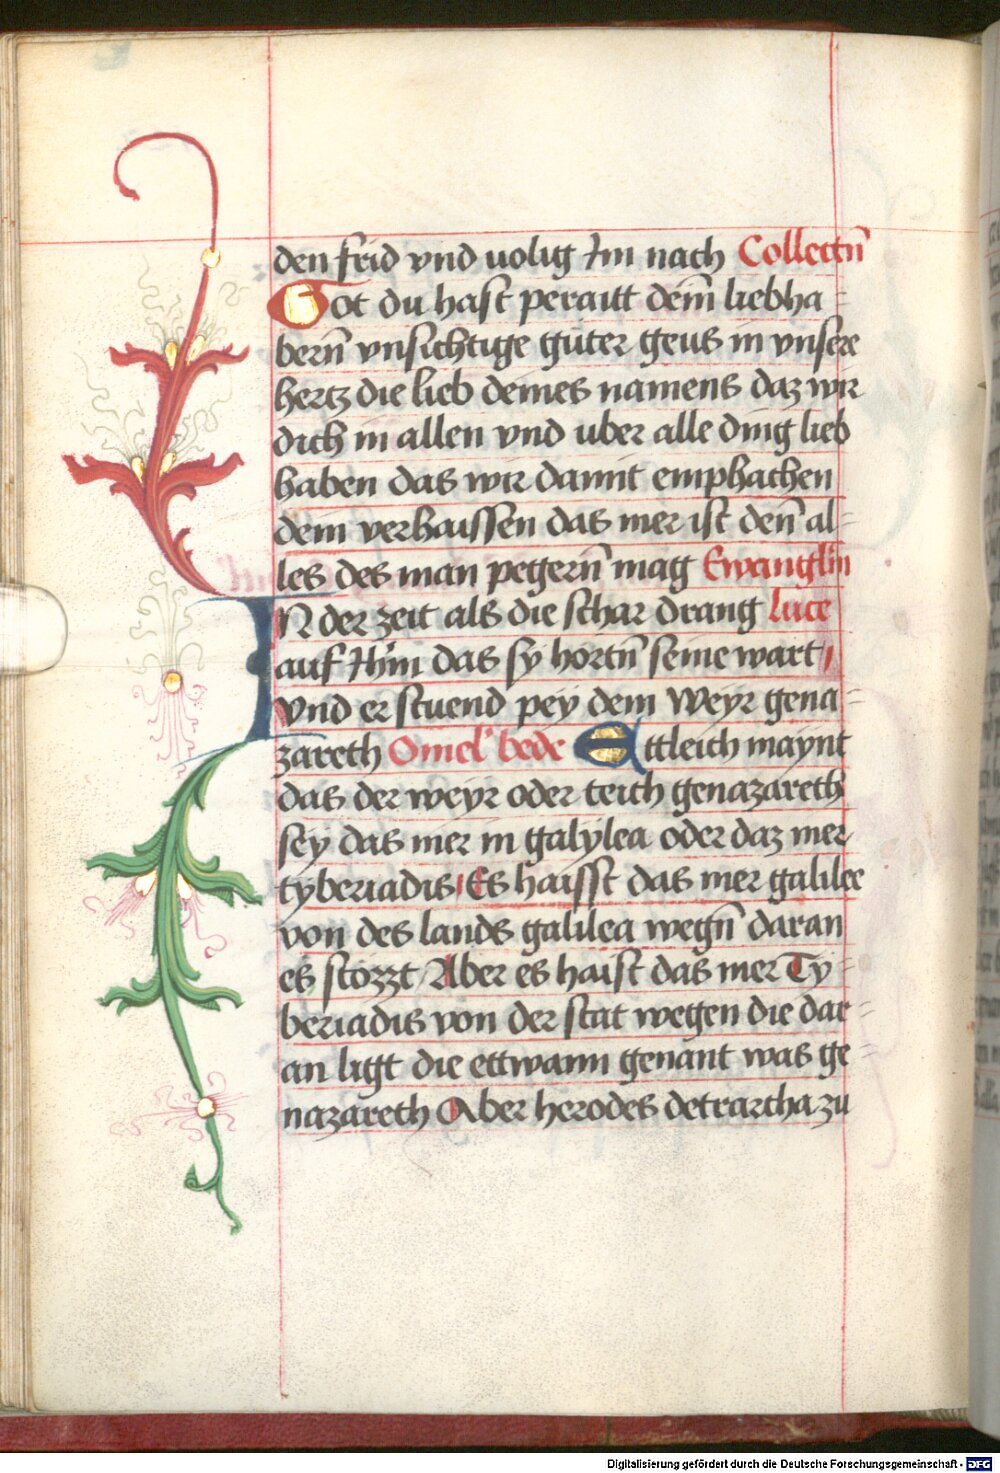 den frid vnd uolig Im nach Collectn̄
Got du hast peraitt dein̄ liebha=
bern̄ vnsichtige guter geus in vnsere
hertz die lieb deines namens daz wir
dich in allen vnd uber alle ding lieb
haben das wir damit emphachen
dem verhaissen das mer ist den̄ al=
les des man pegern̄ mag Ewanglīn
IN der zeit als die schar drang luce
auf Ihm̄ das sy hortn̄ seine wart
Vnd er stuend pey dem Weyr gena=
zareth Omel' bede Ettleich maynt
das der weyr oder teich genazareth
sey das mer in galylea oder daz mer
tyberiadis Es haisst das mer galilee
von des lands galilea wegn̄ daran
es stozzt Aber es haist das mer Ty=
beriadis von der stat wegen die dar=
an ligt die ettwann genant was ge=
nazareth Aber herodes detrartha zu
Digitalisierung gefördert durch die Deutsche Forschungsgemeinschaft - DFG